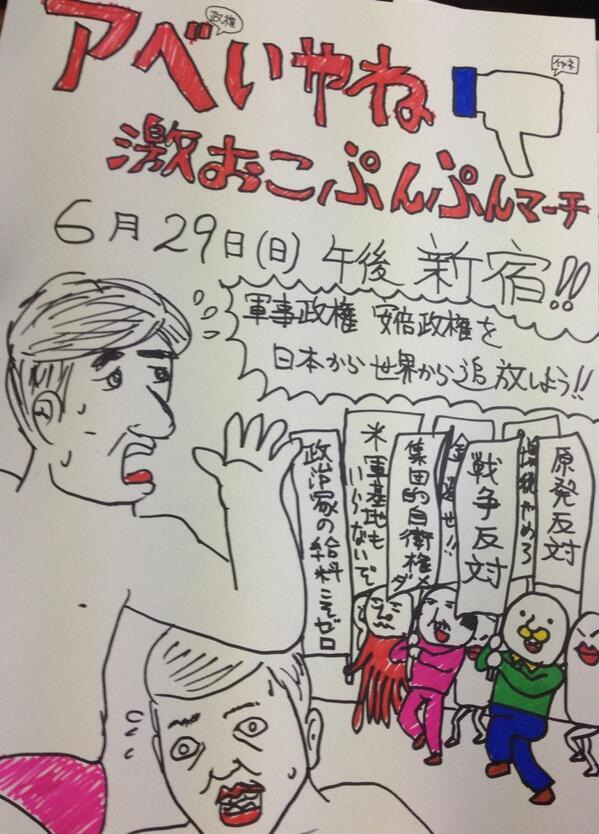 政権
アベいやね
イヤネ
激おこぷんぷんマーチ
6月29日(日) 午後 新宿!!
軍事政権 安倍政権を
日本から世界から追放しよう!!
原発反対
増税やめろ
戦争反対
金返せ!!
集団的自衛権ダメ
米軍基地も
いらないで
政治家の給料こそゼロ